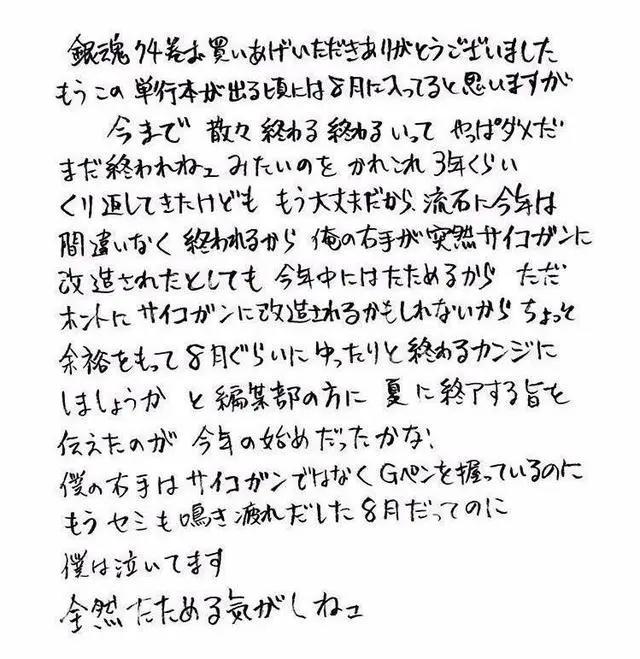 銀魂74巻お買いあげいただきありがとうございました
もうこの単行本が出る頃には8月に入ってると思いますが
今まで散々終わる終わるいって やっぱダメだ
まだ終われねェ みたいのを かれこれ3年くらい
くり返してきたけども もう大丈夫だから、流石に今年は
間違いなく 終われるから 俺の右手が突然サイコガンに
改造されたとしても 今年中にはたためるから ただ
ホントにサイコガンに改造されるかもしれないから ちょっと
余裕をもって8月ぐらいにゆったりと終わるカンジに
しましょうか と編集部の方に 夏に終了する旨を
伝えたのが 今年の始めだったかな!
僕の右手はサイコガンではなくGペンを握っているのに
もうセミも鳴き疲れだした8月だってのに
僕は泣いてます
全然たためる気がしねェ